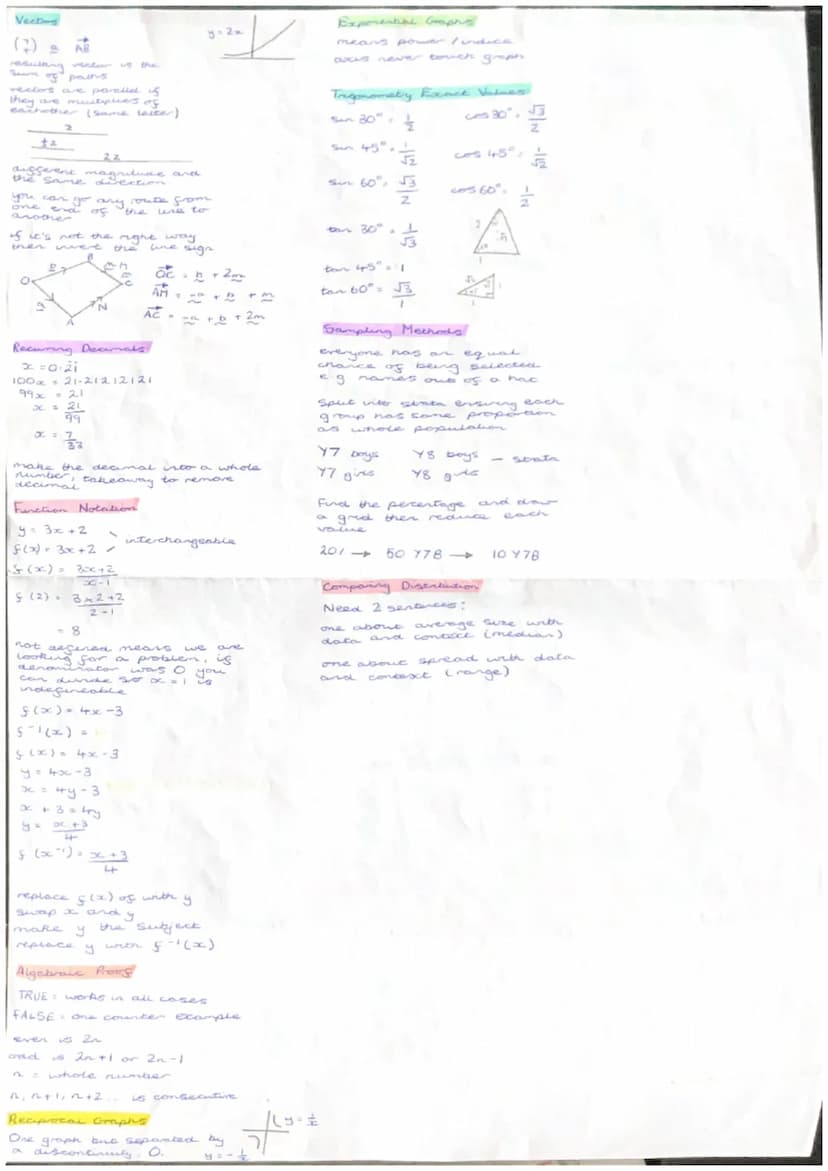 Vectors
(7 7) a AB
resulting vector is the
sum of paths
vectors are parallel if
they are multiples of
eachother (same letter)
z
½z
2z
different magnitude and
the same direction
you can go any route from
one end of the line to
another
if it's not the right way
then invert the line sign
O
b
B
m
M
m
C
a
A
N
OC = b + 2m
AM = -a + b + m
AC = -a + b + 2m
Recurring Decimals
x = 0.21
100x = 21.21212121
99x = 21
x = 21/99
x = 7/33
make the decimal into a whole
number, takeaway to remove
decimal
Function Notation
y = 3x + 2
f(x) = 3x + 2
interchangeable
f(x) = 3x+2/x-1
f(2) = 3x2+2/2-1
= 8
not defined means we are
looking for a problem, if
denominator was 0 you
can divide so x = 1 is
undefineable
f(x) = 4x - 3
f⁻¹(x) =
f(x) = 4x - 3
y = 4x - 3
x = 4y - 3
x + 3 = 4y
y = x+3/4
f(x⁻¹) = x+3/4
replace f(x) of with y
swap x and y
make y the subject
replace y with f⁻¹(x)
Algebraic Proof
TRUE = works in all cases
FALSE = one counter example
even is 2n
odd is 2n+1 or 2n-1
n = whole number
n, n+1, n+2... is consecutive
Reciprocal Graphs
One graph but separated by
a discontinuity, 0.
y = 1/x
y = -1/x
y = 2x
Exponential Graphs
means power / indice
axis never touch graph
Trigonometry Exact Values
sin 30° = 1/2
cos 30° = √3/2
sin 45° = 1/√2
cos 45° = 1/√2
sin 60° = √3/2
cos 60° = 1/2
tan 30° = 1/√3
tan 45° = 1
tan 60° = √3/1
2
√3
√2
1
1
Sampling Methods
everyone has an equal
chance of being selected
e.g names out of a hat
Split into strata ensuring each
group has same proportion
as whole population
Y7 boys Y8 boys - strata
Y7 girls Y8 girls
Find the percentage and draw
a grid then reduce each
value
20% → 50 Y7B → 10 Y7B
Comparing Distribution
Need 2 sentences:
one about average size with
data and context (median)
one about spread with data
and context (range)